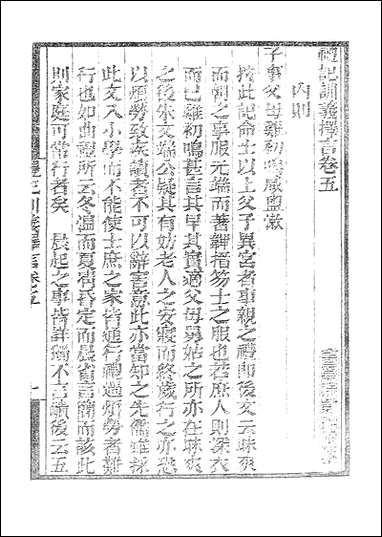 禮記訓義擇言卷五
內則
子事父母雞初鳴咸盥漱
按此記命士以上父子異宮者事親之禮即後文云昧爽
而朝之事服元端而著韠搢笏士之服也若庶人則深衣
而已雞初鳴甚言其早其實適父母舅姑之所亦在昧爽
之後朱文端公疑其有妨老人之安寢而終歲行之亦恐
以煩勞致疾讀者不可以辭害意此亦當知之先儒雖採
此文入小學而不能使士庶之家皆通行禮過煩勞者難
行也如曲禮所云冬溫而夏凊昏定而晨省言簡而該此
則家庭可常行者矣 晨起之事皆詳獨不言饋後云五
禮記訓義擇言卷五
一